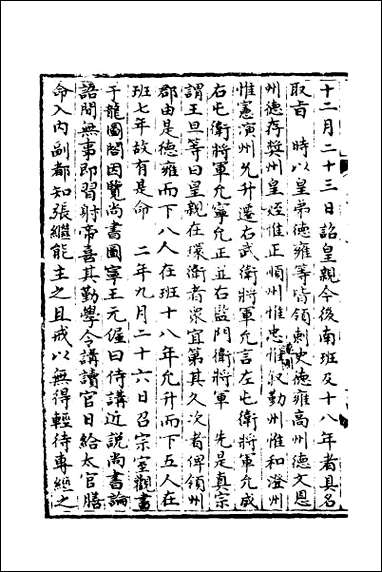 十二月二十三日詔皇親今後南班及十八年者具名
取旨　時以皇弟德雍等皆領刺史德雍高州德文恩
州德存獎州皇姪惟正順州惟忠惟叙勤州惟和澄州
惟憲演州允升遷右武衛將軍允言左屯衛將軍允成
右屯衛將軍允寧允正並右監門衛將軍　先是真宗
謂王旦等曰皇親在環衛者衆宜第其久次者俾領州
郡由是德雍而下八人在班十八年允升而下五人在
班七年故有是命　二年九月二十六日召宗室觀書
于龍圖閣因覧尚書圖寧王元偓曰侍講近説尚書論
語閒無事即習射帝喜其勤學今講讀官日給太官膳
命入内副都知張繼能主之且戒以無得輕待專經之